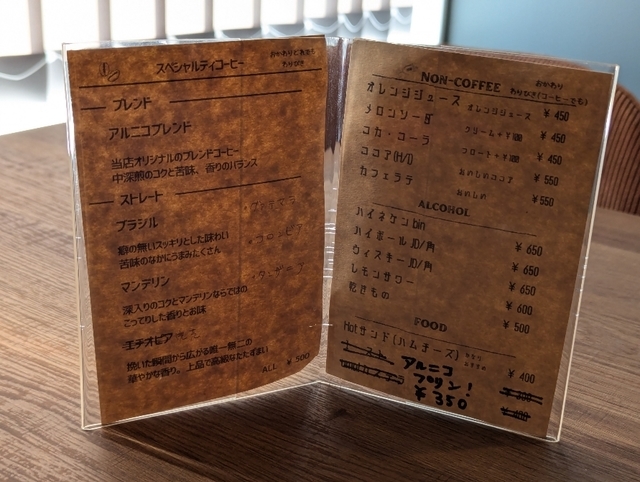 スペシャルティコーヒー
ブレンド
アルニコブレンド
当店オリジナルのブレンドコーヒー
中深煎のコクと苦味、香りのバランス
ストレート
ブラジル
癖の無いスッキリとした味わい
苦味のなかにうまみたくさん
マンデリン
深入りのコクとマンデリンならではの
こってりした香りとお味
エチオピア
挽いた瞬間から広がる唯一無二の
華やかな香り。上品で高級なたたずまい
ALL ¥500
NON-COFFEE
オレンジジュース オレンジジュース ¥450
メロンソーダ ¥450
コカ・コーラ ¥450
ココア(H/I) ¥550
カフェラテ ¥550
ALCOHOL
ハイネケンbin ¥650
ハイボールJD/角 ¥650
ウィスキーJD/角 ¥650
レモンサワー ¥600
乾きもの ¥500
FOOD
Hotサンド(ハムチーズ) ¥400
アルニコ
プリン!
¥350